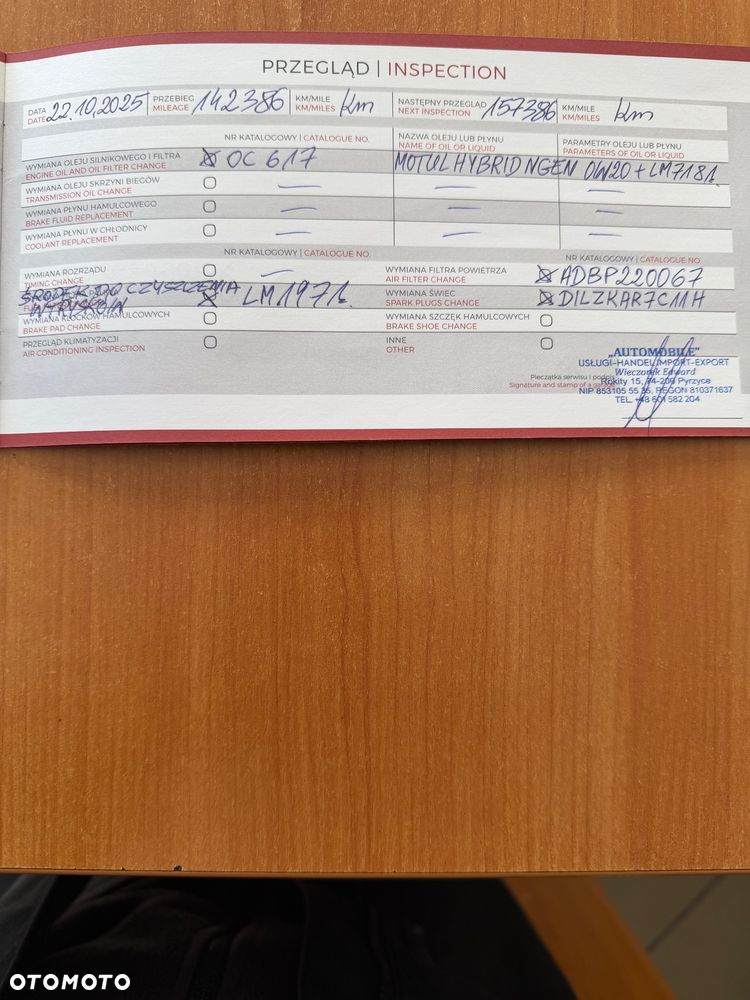 PRZEGLĄD | INSPECTION
DATA DATE 22.10.2025 PRZEBIEG MILEAGE 142386 KM/MILE KM/MILES km NASTĘPNY PRZEGLĄD NEXT INSPECTION 157386 KM/MILE KM/MILES km
NR KATALOGOWY | CATALOGUE NO. NAZWA OLEJU LUB PŁYNU NAME OF OIL OR LIQUID PARAMETRY OLEJU LUB PŁYNU PARAMETERS OF OIL OR LIQUID
WYMIANA OLEJU SILNIKOWEGO I FILTRA OC 617 MOTUL HYBRID NGEN 0W20 + LM7181.
ENGINE OIL AND OIL FILTER CHANGE
WYMIANA OLEJU SKRZYNI BIEGÓW
TRANSMISSION OIL CHANGE
WYMIANA PŁYNU HAMULCOWEGO
BRAKE FLUID REPLACEMENT
WYMIANA PŁYNU W CHŁODNICY
COOLANT REPLACEMENT
NR KATALOGOWY | CATALOGUE NO. NR KATALOGOWY | CATALOGUE NO.
WYMIANA ROZRZĄDU WYMIANA FILTRA POWIETRZA ADBP220067
TIMING CHANGE AIR FILTER CHANGE
ŚRODEK DO CZYSZCZENIA LM1971. WYMIANA ŚWIEC DILZKAR7C11H
WTRYSKÓW SPARK PLUGS CHANGE
WYMIANA KLOCKÓW HAMULCOWYCH WYMIANA SZCZĘK HAMULCOWYCH
BRAKE PAD CHANGE BRAKE SHOE CHANGE
PRZEGLĄD KLIMATYZACJI INNE
AIR CONDITIONING INSPECTION OTHER
„AUTOMOBILE"
USŁUGI-HANDEL IMPORT-EXPORT
Wieczorek Edward
Pieczątka serwisu i podpis Rokity 15, 74-200 Pyrzyce
Signature and stamp of a garage NIP 853105 55 35, REGON 810371637
TEL. +48 601 582 204
OTOMOTO